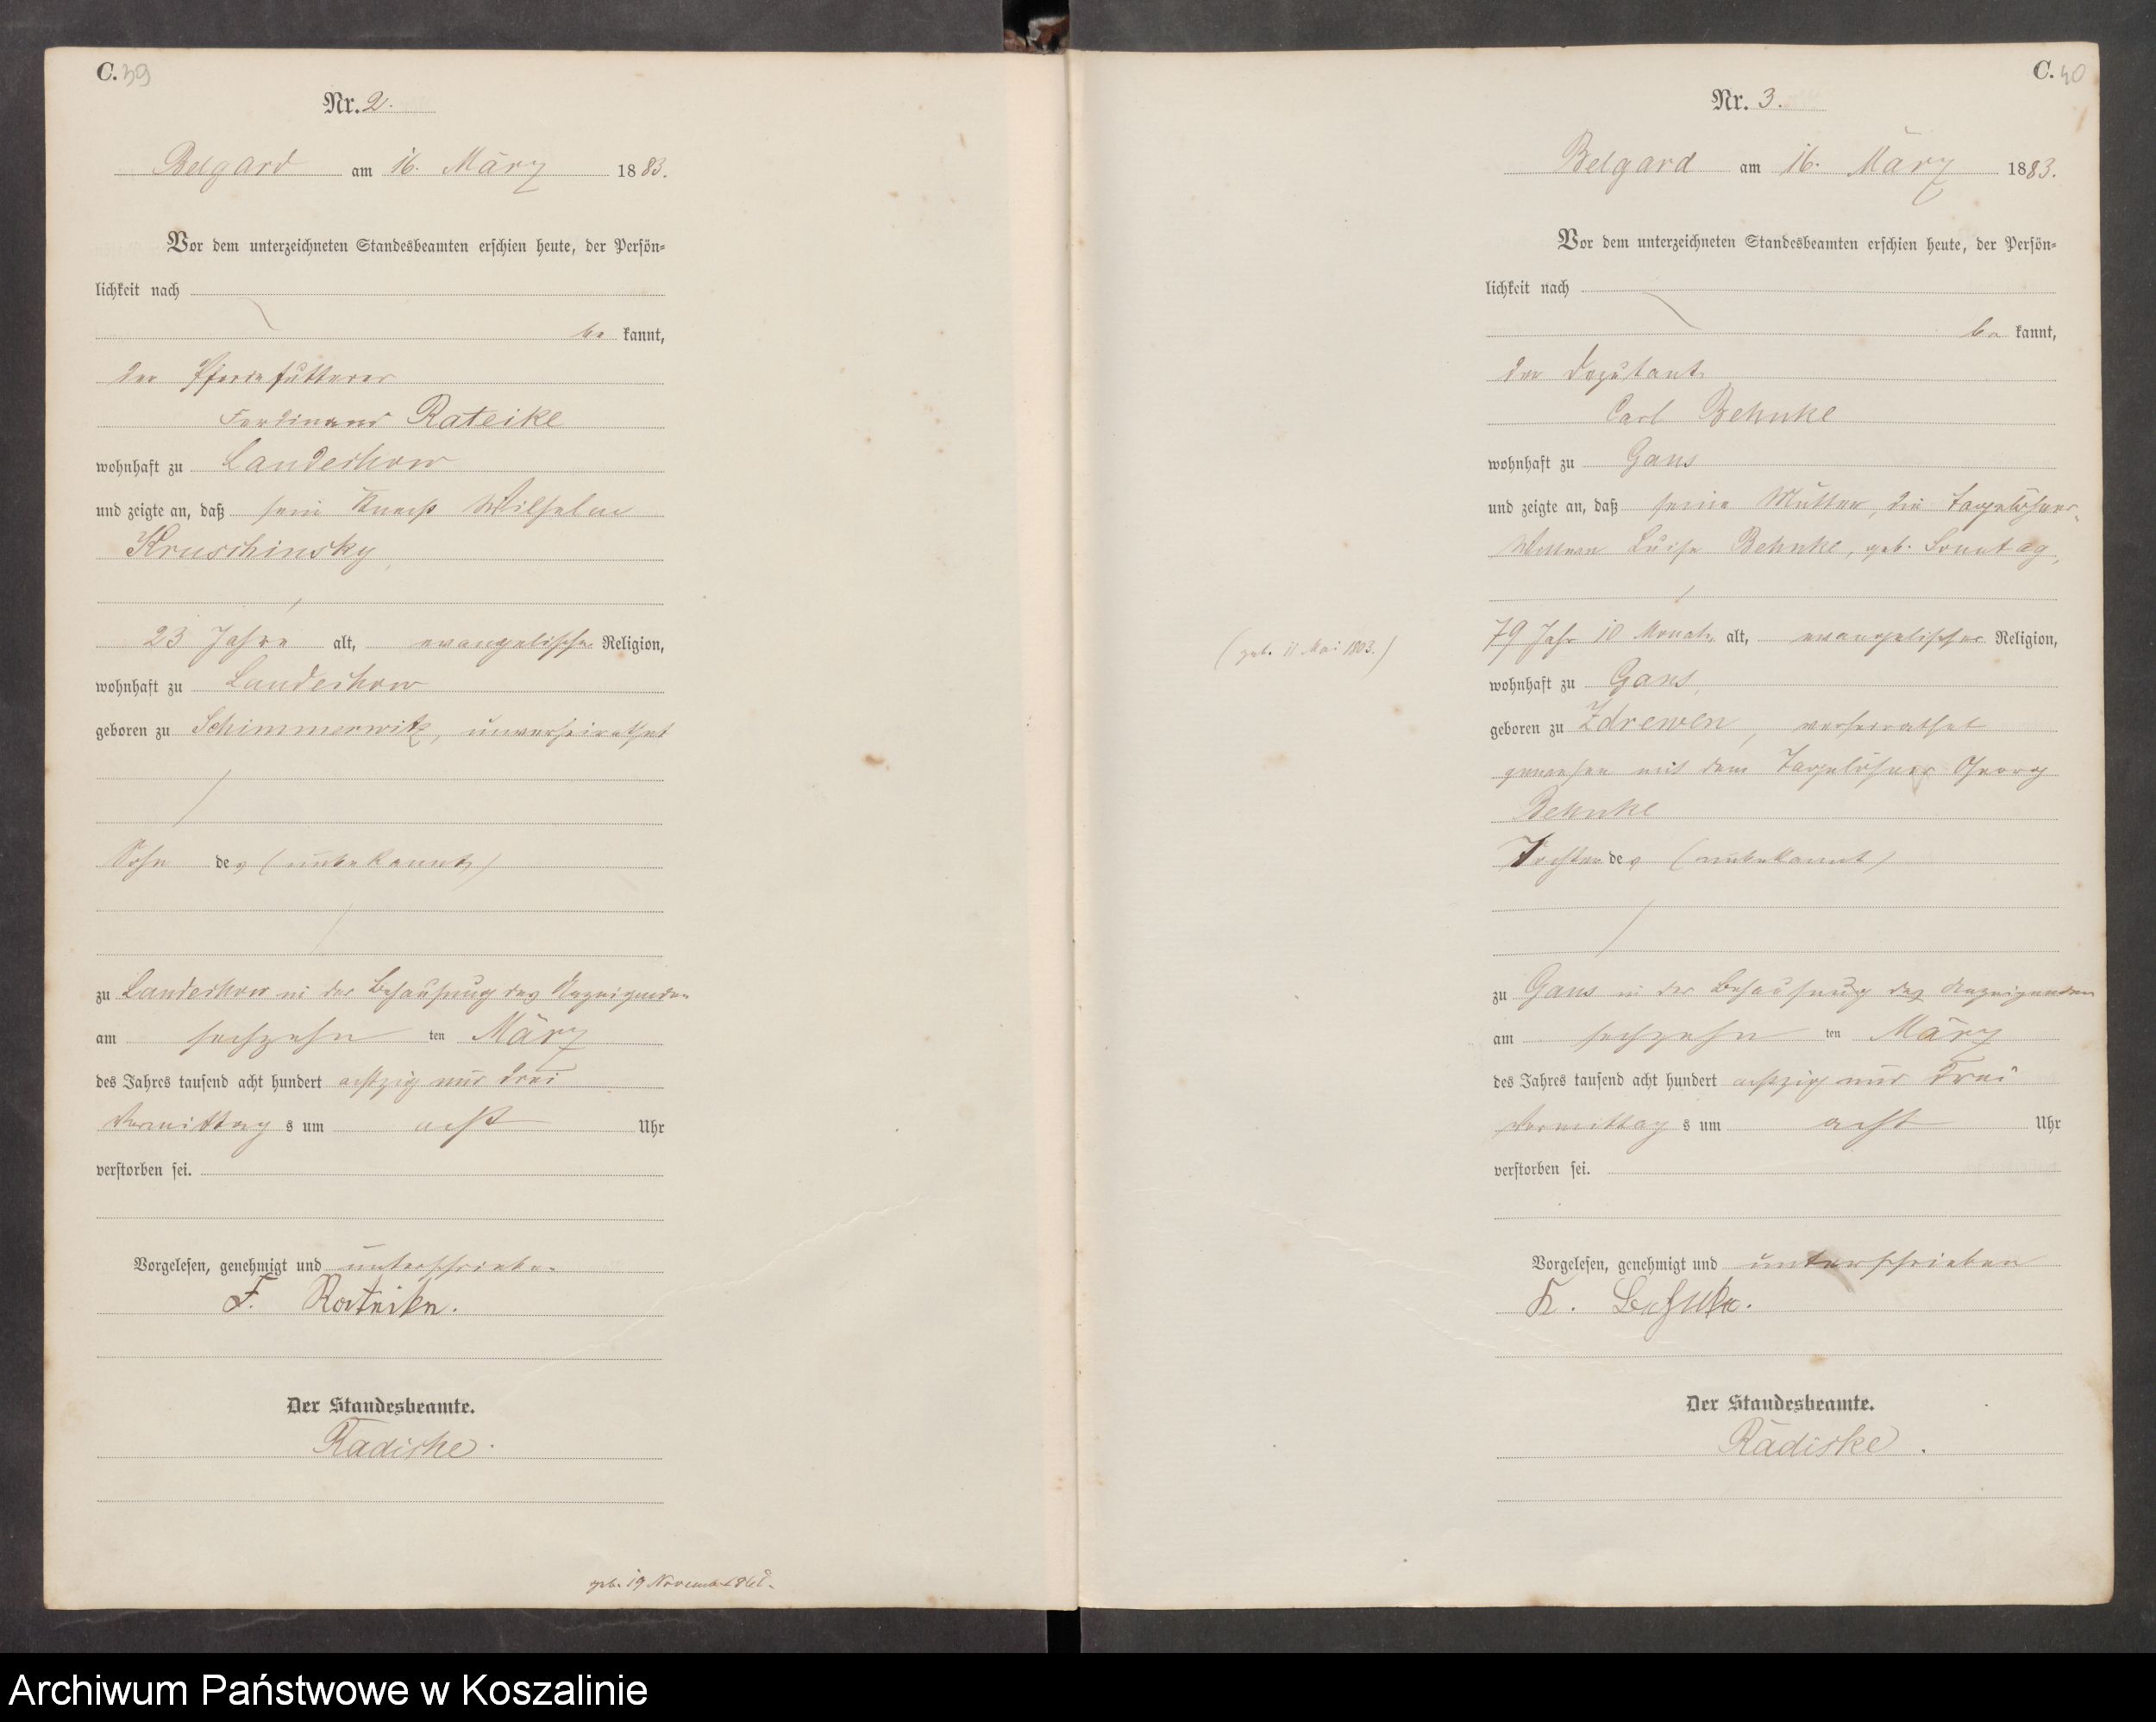 C. 39
Nr. 2.
Belgard am 16. März 1883.
Vor dem unterzeichneten Standesbeamten erschien heute, der Persön-
lichkeit nach
be kannt,
der Pferdefütterer
Ferdinand Rateike
wohnhaft zu Landechow
und zeigte an, daß sein Knecht Wilhelm
Kruschinsky,
23 Jahre alt, evangelischer Religion,
wohnhaft zu Landechow
geboren zu Schimmerwitz, unverheirathet
Sohn des (unbekannt)
zu Landechow in der Behausung des Anzeigenden
am sechzehn ten März
des Jahres tausend acht hundert achtzig und drei
Vormittag s um acht Uhr
verstorben sei.
Vorgelesen, genehmigt und unterschrieben
F. Rateike.
Der Standesbeamte.
Radiske.
geb. 19 November
C. 40
Nr. 3.
Belgard am 16. März 1883.
Vor dem unterzeichneten Standesbeamten erschien heute, der Persön-
lichkeit nach
be kannt,
der Deputant
Carl Behnke
wohnhaft zu Gans
und zeigte an, daß seine Mutter, die Tagelöhner-
Wittwe Luise Behnke, geb. Sonntag,
(geb. 11 Mai 1803.)
79 Jahr 10 Monate alt, evangelischer Religion,
wohnhaft zu Gans,
geboren zu Zdrewen, verheirathet
gewesen mit dem Tagelöhner Georg
Behnke
Tochter des (unbekannt)
zu Gans in der Behausung des Anzeigenden
am sechzehn ten März
des Jahres tausend acht hundert achtzig und drei
Vormittag s um acht Uhr
verstorben sei.
Vorgelesen, genehmigt und unterschrieben
K. Behnke.
Der Standesbeamte.
Radiske.
Archiwum Państwowe w Koszalinie